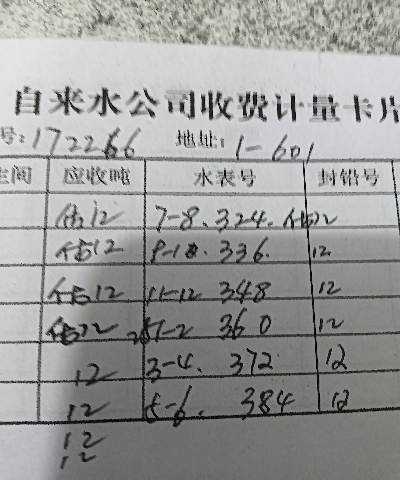 自来水公司收费计量卡片
号:172266 地址: 1-601
间 应收吨 水表号 封铅号
估12 7-8. 324. 估12
估12 9-10. 336. 12
估12 11-12 348 12
估12 1-2 360 12
12 3-4. 372 12
12 5-6. 384 12
12
12